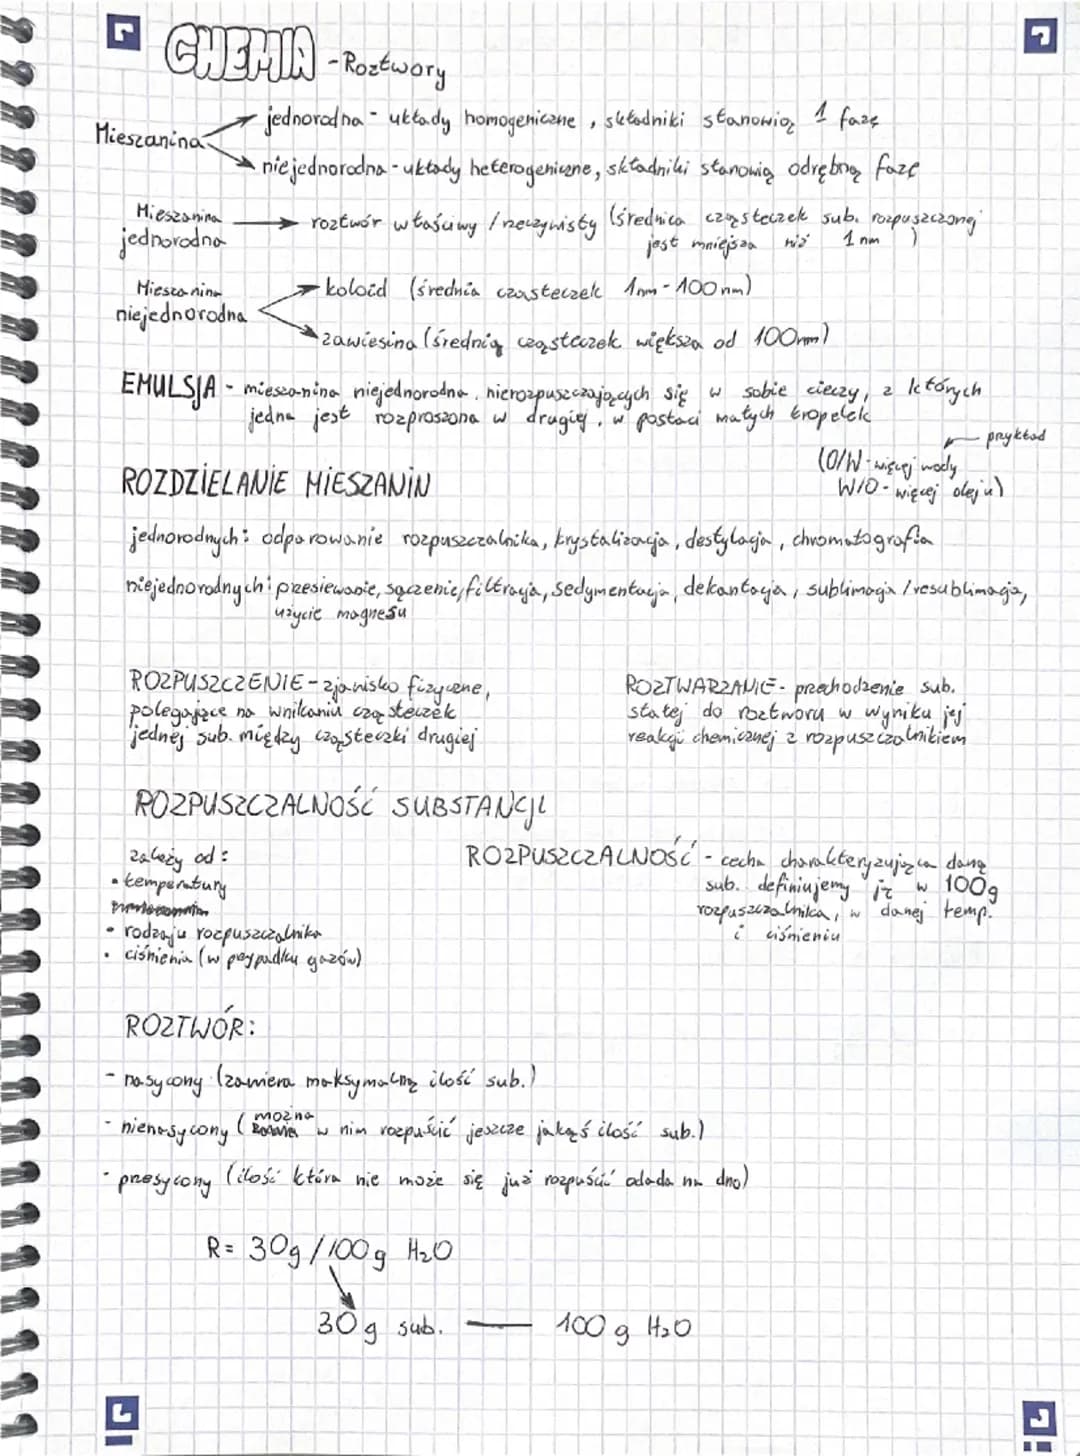 CHEMIA - Roztwory
Mieszanina
jednorodna - układy homogeniczne, składniki stanowią 1 fazę
niejednorodna - układy heterogeniczne, składniki stanowią odrębną fazę
Mieszanina jednorodna → roztwór właściwy / rzeczywisty (średnica cząsteczek sub. rozpuszczonej
jest mniejsza niż 1 nm)
Mieszanina niejednorodna
koloid (średnia cząsteczek 1nm - 100 nm)
zawiesina (średnia cząsteczek większa od 100nm)
EMULSJA - mieszanina niejednorodna, nierozpuszczających się w sobie cieczy, z których
jedna jest rozproszona w drugiej, w postaci małych kropelek
przykład
(O/W - więcej wody
W/O - więcej oleju)
ROZDZIELANIE MIESZANIN
jednorodnych: odparowanie rozpuszczalnika, krystalizacja, destylacja, chromatografia
niejednorodnych: przesiewanie, sączenie/filtracja, sedymentacja, dekantacja, sublimacja / resublimacja,
użycie magnesu
ROZPUSZCZENIE - zjawisko fizyczne,
polegające na wnikaniu cząsteczek
jednej sub. między cząsteczki drugiej
ROZTWARZANIE - przechodzenie sub.
stałej do roztworu w wyniku jej
reakcji chemicznej z rozpuszczalnikiem
ROZPUSZCZALNOŚĆ SUBSTANCJI
zależy od:
• temperatury
• rodzaju rozpuszczalnika
• ciśnienia (w przypadku gazów)
ROZPUSZCZALNOŚĆ - cecha charakteryzująca daną
sub. definiujemy ją w 100g
rozpuszczalnika, w danej temp.
i ciśnieniu
ROZTWÓR:
- nasycony (zawiera maksymalną ilość sub.)
- nienasycony (można w nim rozpuścić jeszcze jakąś ilość sub.)
- przesycony (ilość która nie może się już rozpuścić opada na dno)
R = 30g / 100g H₂O
30 g sub. — 100 g H₂O